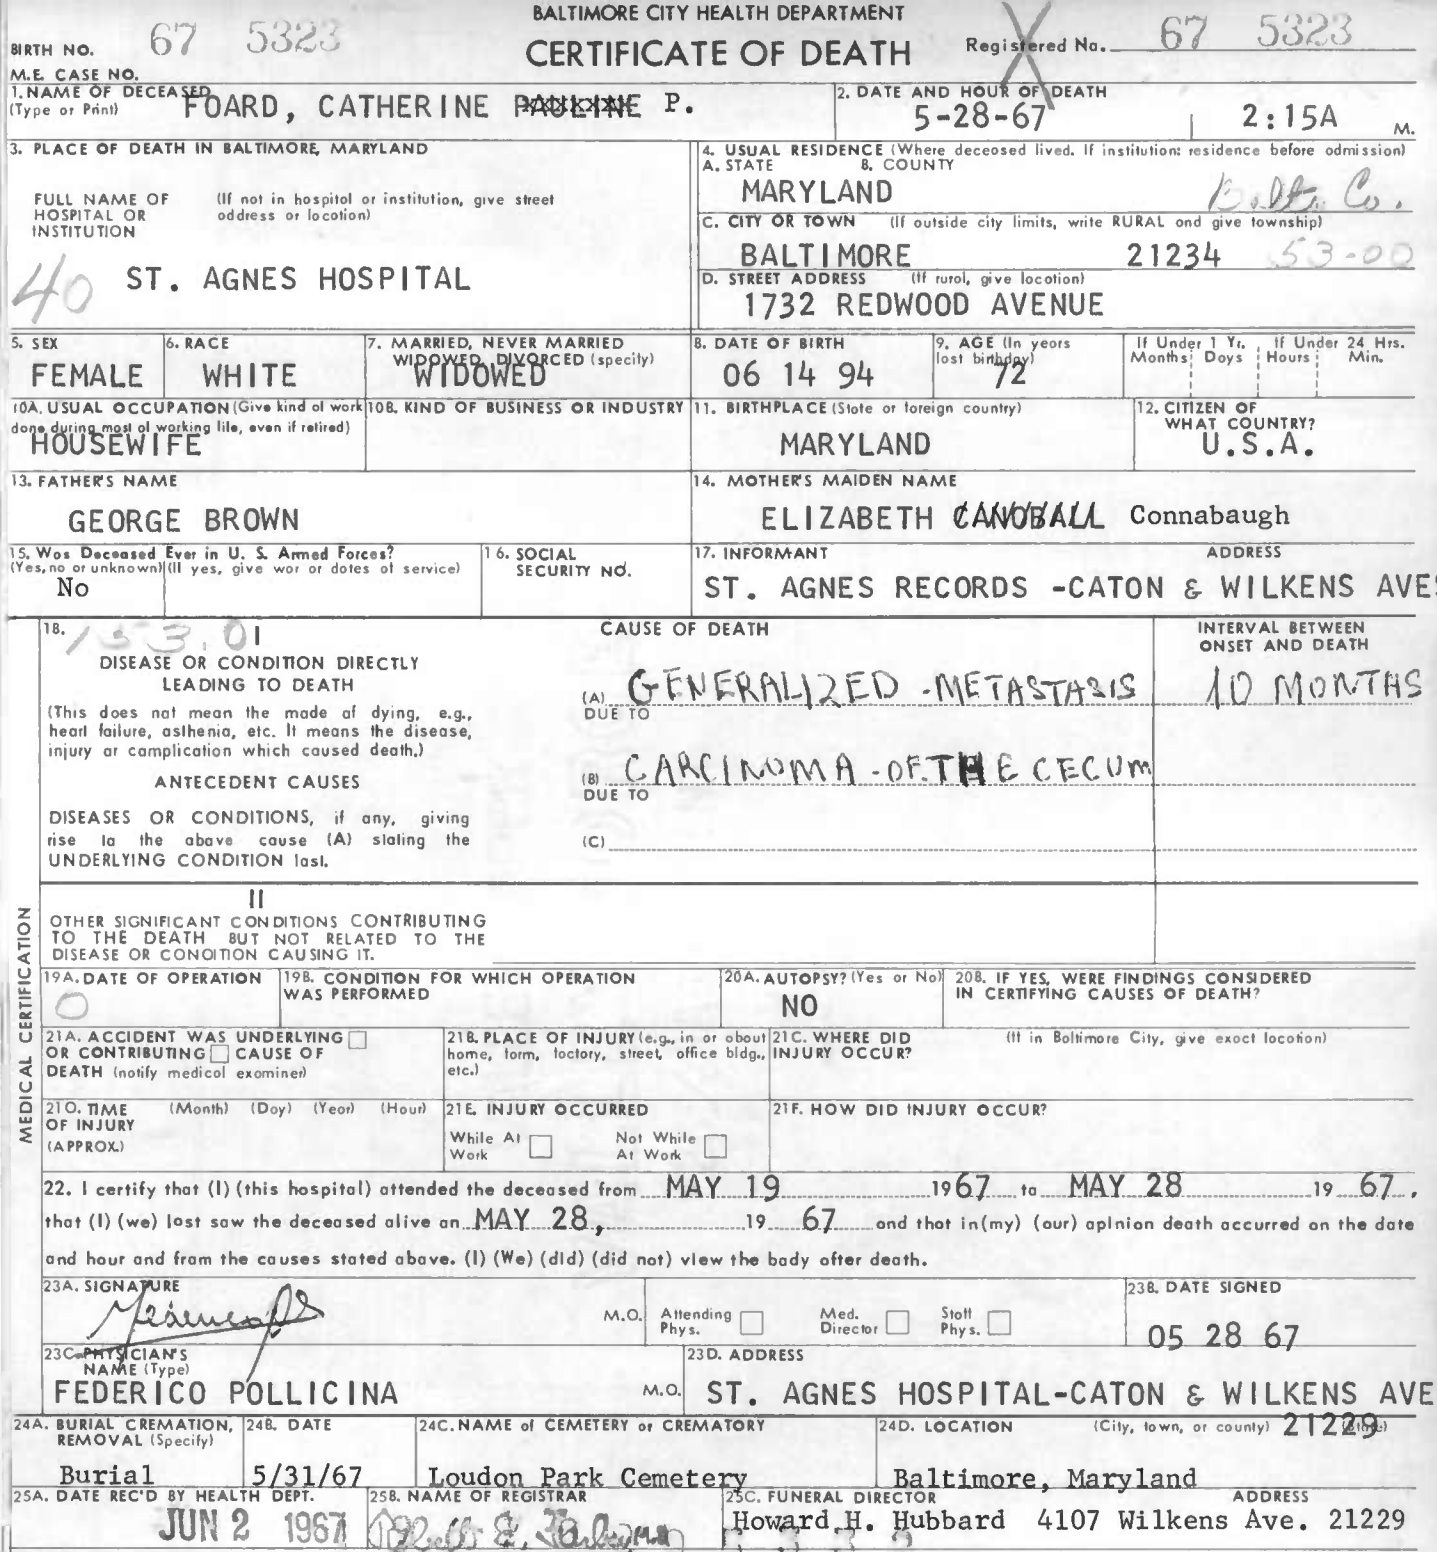 BALTIMORE CITY HEALTH DEPARTMENT
CERTIFICATE OF DEATH
BIRTH NO. 67 5323
Registered No. 67 5323
M.E. CASE NO.
1. NAME OF DECEASED (Type or Print) FOARD, CATHERINE PAULINE P.
2. DATE AND HOUR OF DEATH 5-28-67 2:15A M.
3. PLACE OF DEATH IN BALTIMORE, MARYLAND
FULL NAME OF HOSPITAL OR INSTITUTION (If not in hospital or institution, give street address or location)
40 ST. AGNES HOSPITAL
4. USUAL RESIDENCE (Where deceased lived. If institution: residence before admission)
A. STATE B. COUNTY
MARYLAND Balto. Co.
C. CITY OR TOWN (If outside city limits, write RURAL and give township)
BALTIMORE 21234 53-00
D. STREET ADDRESS (If rural, give location)
1732 REDWOOD AVENUE
5. SEX FEMALE
6. RACE WHITE
7. MARRIED, NEVER MARRIED WIDOWED, DIVORCED (specify) WIDOWED
8. DATE OF BIRTH 06 14 94
9. AGE (In years last birthday) 72
If Under 1 Yr. Months Days If Under 24 Hrs. Hours Min.
10A. USUAL OCCUPATION (Give kind of work done during most of working life, even if retired) HOUSEWIFE
10B. KIND OF BUSINESS OR INDUSTRY
11. BIRTHPLACE (State or foreign country) MARYLAND
12. CITIZEN OF WHAT COUNTRY? U.S.A.
13. FATHER'S NAME GEORGE BROWN
14. MOTHER'S MAIDEN NAME ELIZABETH CANOBALL Connabaugh
15. Was Deceased Ever in U. S. Armed Forces? (Yes, no or unknown) (If yes, give war or dates of service) No
16. SOCIAL SECURITY NO.
17. INFORMANT ADDRESS
ST. AGNES RECORDS -CATON & WILKENS AVES
MEDICAL CERTIFICATION
18. 153.0 I
CAUSE OF DEATH
INTERVAL BETWEEN ONSET AND DEATH
DISEASE OR CONDITION DIRECTLY LEADING TO DEATH
(This does not mean the mode of dying, e.g., heart failure, asthenia, etc. It means the disease, injury or complication which caused death.)
(A) GENERALIZED - METASTASIS 10 MONTHS
DUE TO
ANTECEDENT CAUSES
(B) CARCINOMA - OF THE CECUM
DUE TO
DISEASES OR CONDITIONS, if any, giving rise to the above cause (A) stating the UNDERLYING CONDITION last.
(C)
II
OTHER SIGNIFICANT CONDITIONS CONTRIBUTING TO THE DEATH BUT NOT RELATED TO THE DISEASE OR CONDITION CAUSING IT.
19A. DATE OF OPERATION 0
19B. CONDITION FOR WHICH OPERATION WAS PERFORMED
20A. AUTOPSY? (Yes or No) NO
20B. IF YES, WERE FINDINGS CONSIDERED IN CERTIFYING CAUSES OF DEATH?
21A. ACCIDENT WAS UNDERLYING OR CONTRIBUTING CAUSE OF DEATH (notify medical examiner)
21B. PLACE OF INJURY (e.g., in or about home, farm, factory, street, office bldg., etc.)
21C. WHERE DID INJURY OCCUR? (If in Baltimore City, give exact location)
21D. TIME OF INJURY (APPROX.) (Month) (Day) (Year) (Hour)
21E. INJURY OCCURRED
While At Work Not While At Work
21F. HOW DID INJURY OCCUR?
22. I certify that (I) (this hospital) attended the deceased from MAY 19 1967 to MAY 28 19 67,
that (I) (we) last saw the deceased alive on MAY 28, 19 67 and that in (my) (our) opinion death occurred on the date
and hour and from the causes stated above. (I) (We) (did) (did not) view the body after death.
23A. SIGNATURE
M.D. Attending Phys. Med. Director Staff Phys.
23B. DATE SIGNED 05 28 67
23C. PHYSICIAN'S NAME (Type) FEDERICO POLLICINA M.D.
23D. ADDRESS ST. AGNES HOSPITAL-CATON & WILKENS AVE
24A. BURIAL CREMATION, REMOVAL (Specify) Burial
24B. DATE 5/31/67
24C. NAME of CEMETERY or CREMATORY Loudon Park Cemetery
24D. LOCATION (City, town, or county) (State) 21229
Baltimore, Maryland
25A. DATE REC'D BY HEALTH DEPT. JUN 2 1967
25B. NAME OF REGISTRAR
25C. FUNERAL DIRECTOR ADDRESS
Howard H. Hubbard 4107 Wilkens Ave. 21229